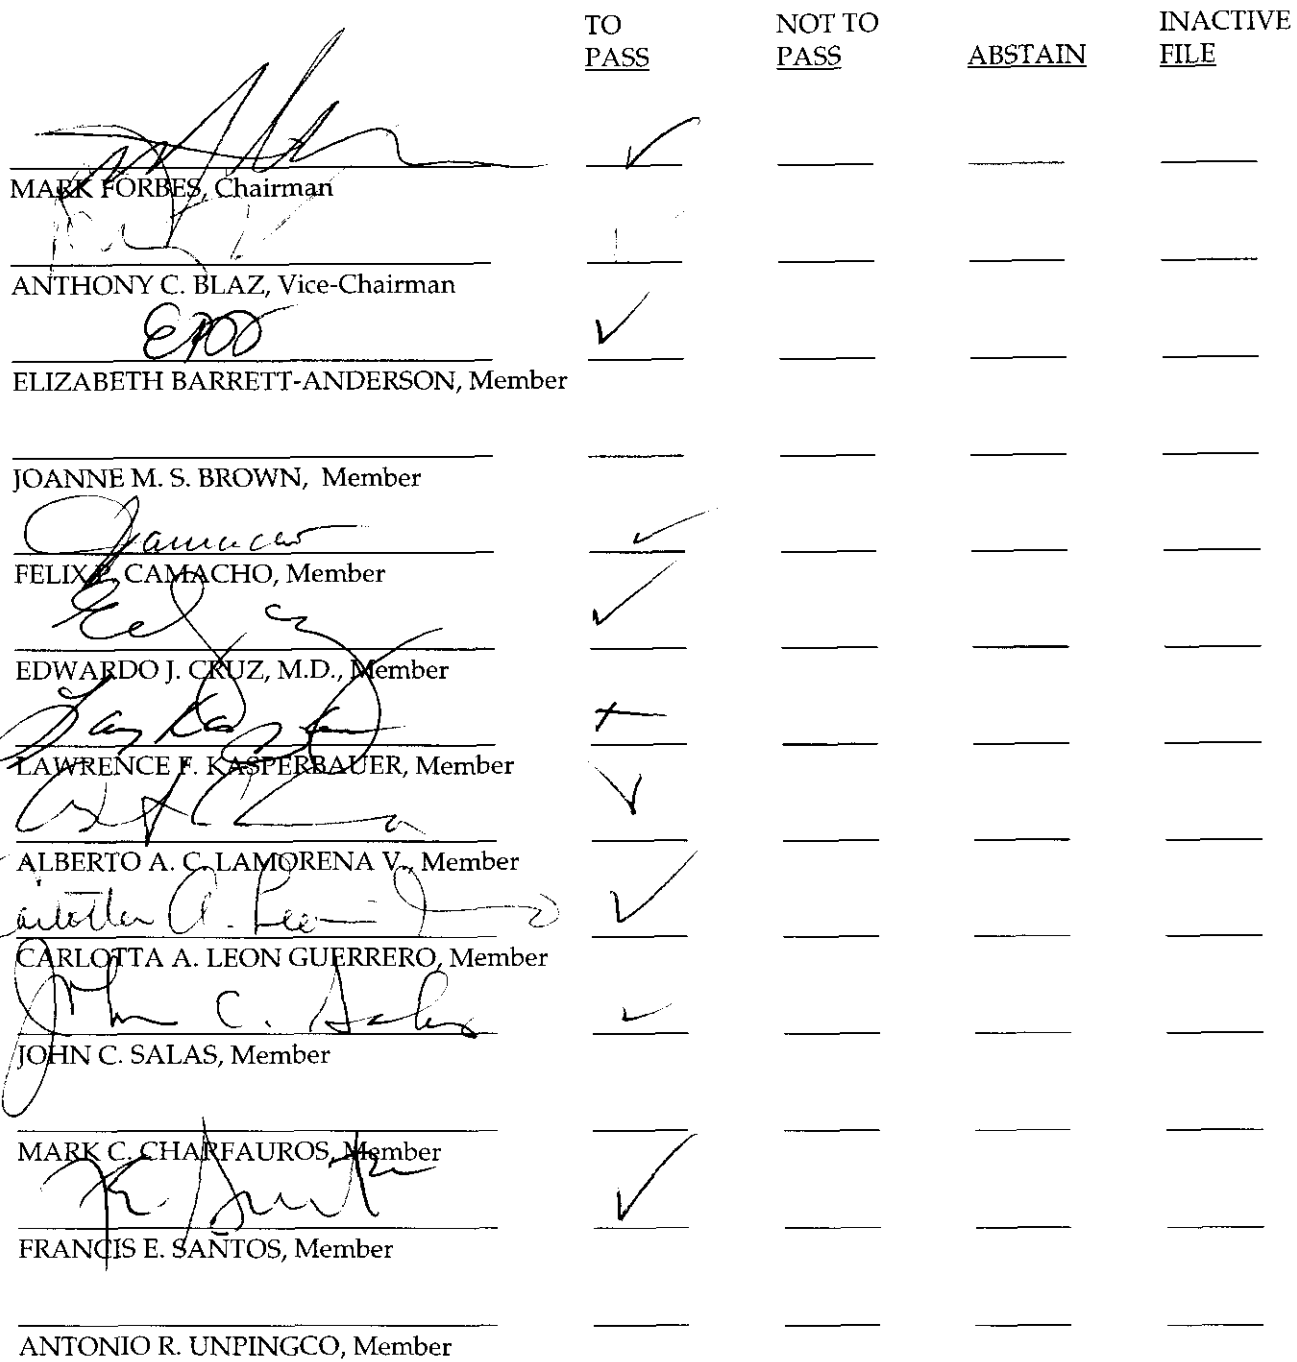 TO PASS NOT TO PASS ABSTAIN INACTIVE FILE
MARK FORBES, Chairman
ANTHONY C. BLAZ, Vice-Chairman
ELIZABETH BARRETT-ANDERSON, Member
JOANNE M. S. BROWN, Member
Camacho
FELIX P. CAMACHO, Member
EDWARDO J. CRUZ, M.D., Member
LAWRENCE F. KASPERBAUER, Member
ALBERTO A. C. LAMORENA V., Member
Carlotta A. Leon
CARLOTTA A. LEON GUERRERO, Member
John C. Salas
JOHN C. SALAS, Member
MARK C. CHARFAUROS, Member
FRANCIS E. SANTOS, Member
ANTONIO R. UNPINGCO, Member